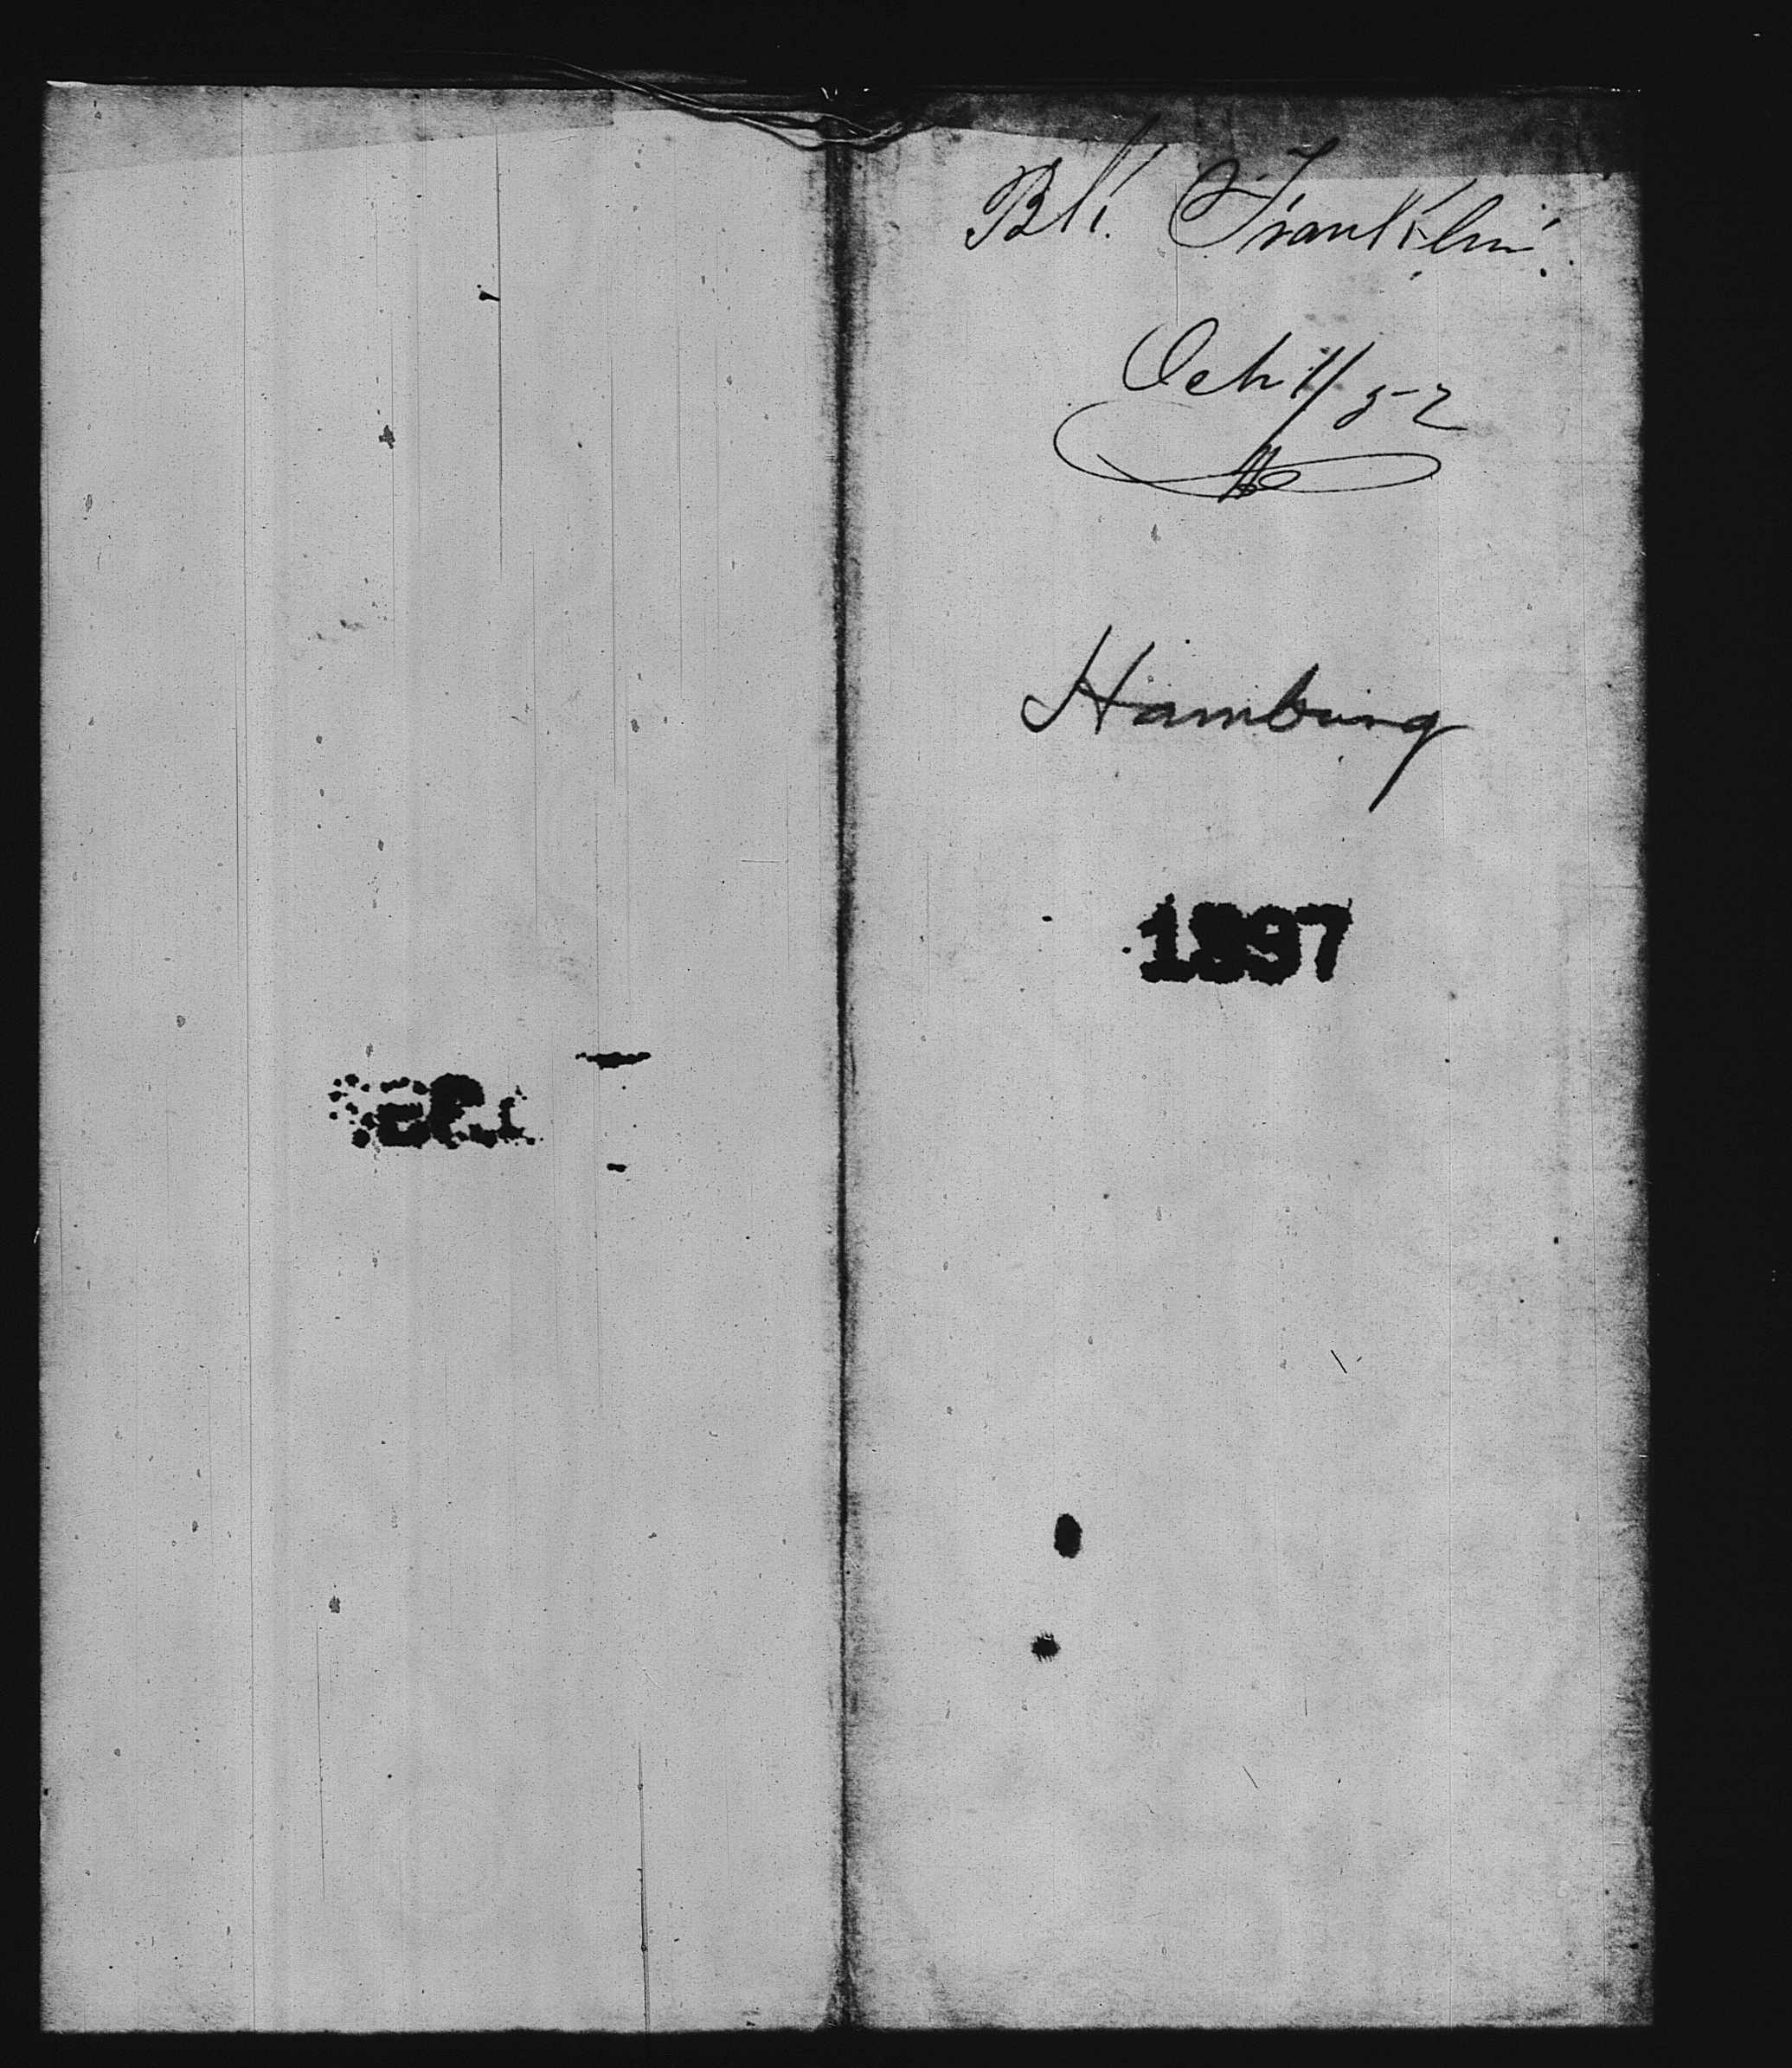 Bk. Franklin.
Oct. 11/52
Hamburg
1897